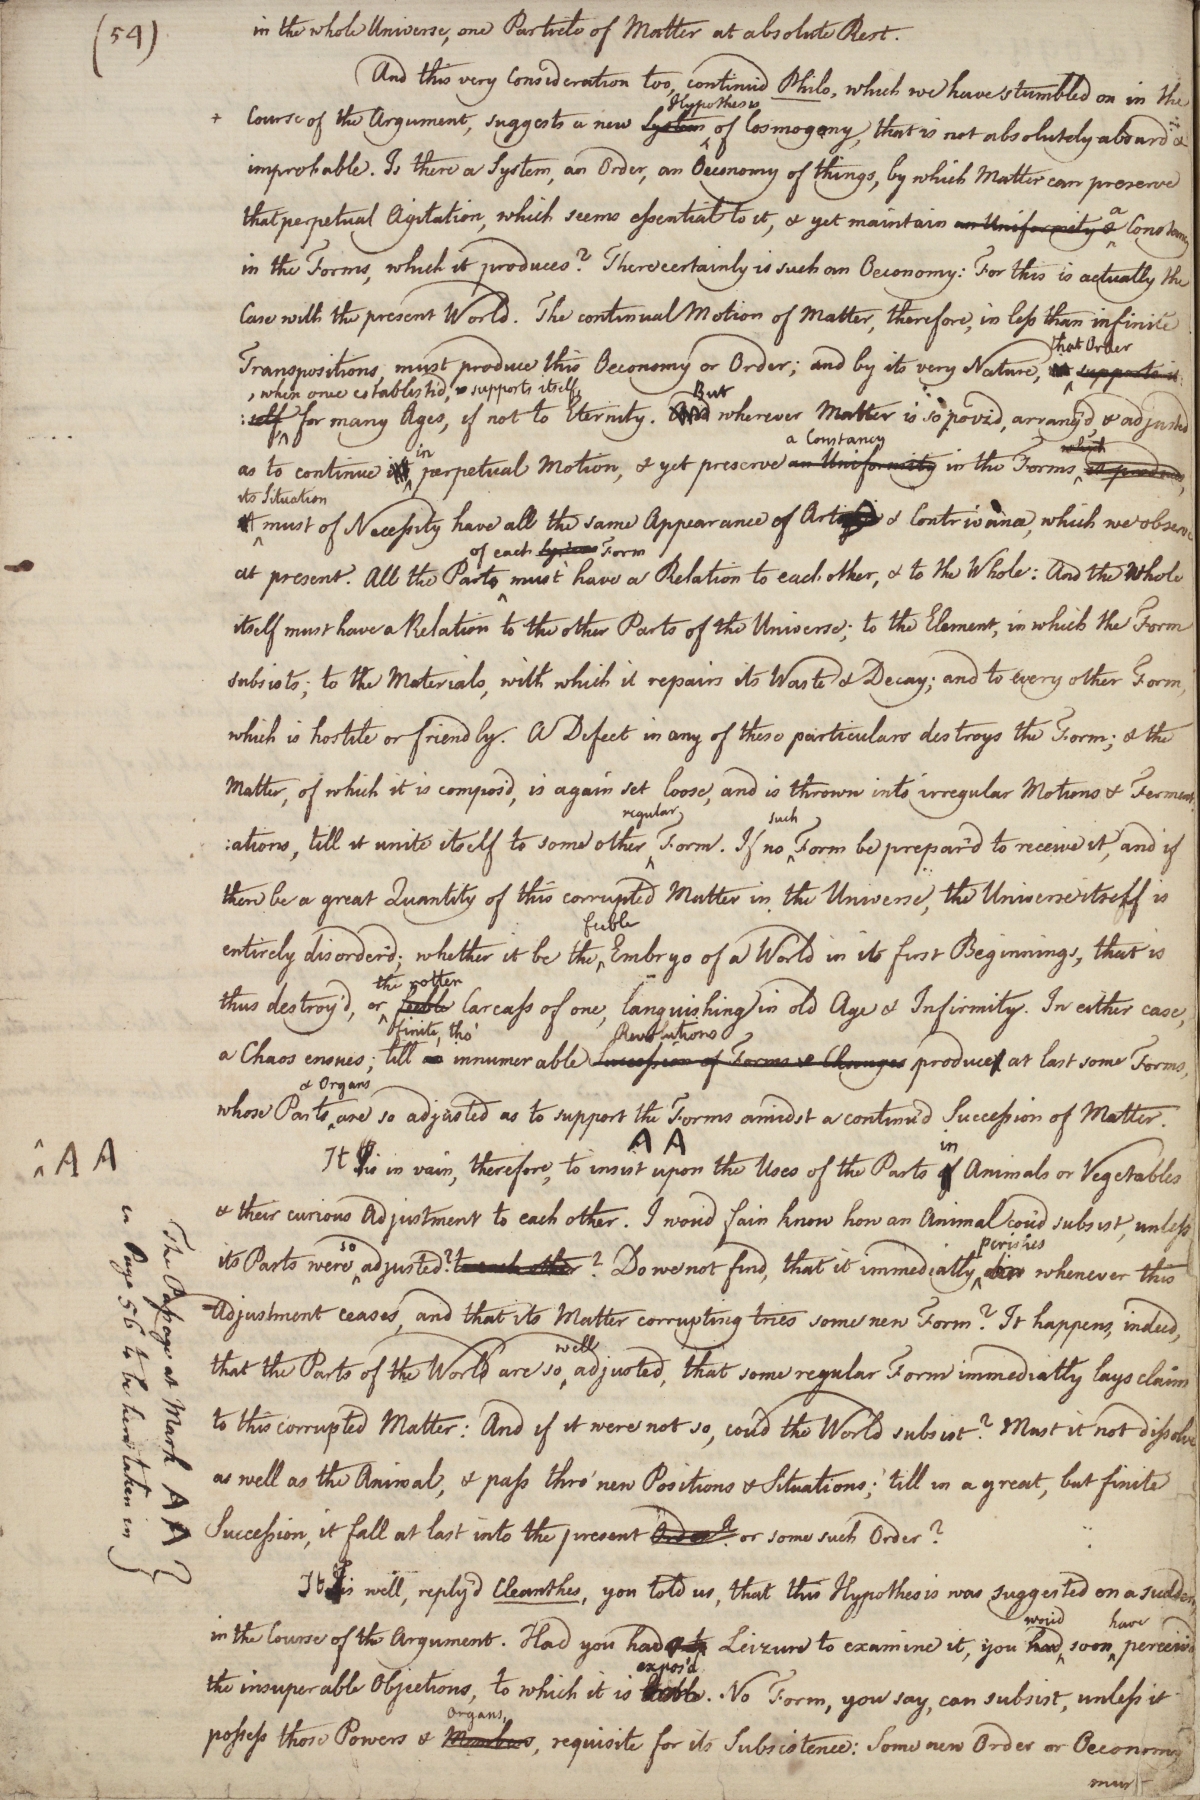 (54)
in the whole Universe, one Particle of Matter at absolute Rest.
And this very Consideration too, continu'd Philo, which we have stumbled on in the
Hypothesis
+ Course of the Argument, suggests a new System of Cosmogony, that is not absolutely absurd &
improbable. Is there a System, an Order, an Oeconomy of things, by which Matter can preserve
that perpetual Agitation, which seems essential to it, & yet maintain an Uniformity & a Constancy
in the Forms, which it produces? There certainly is such an Oeconomy: For this is actually the
Case with the present World. The continual Motion of Matter, therefore, in less than infinite
that Order
Transpositions, must produce this Oeconomy or Order; and by its very Nature, supports it
, when once establish'd, supports itself,
:self for many Ages, if not to Eternity. And But wherever Matter is so poiz'd, arrang'd, & adjusted
in a Constancy which
as to continue perpetual Motion, & yet preserve an Uniformity in the Forms, it produces,
its Situation
must of Necessity have all the same Appearance of Art & Contrivance, which we observe
of each Form
at present. All the Parts must have a Relation to each other, & to the Whole: And the Whole
itself must have a Relation to the other Parts of the Universe; to the Element, in which the Form
subsists; to the Materials, with which it repairs its Waste & Decay; and to every other Form,
which is hostile or friendly. A Defect in any of these particulars destroys the Form; & the
Matter, of which it is compos'd, is again set loose, and is thrown into irregular Motions & Ferment
regular such
:ations, till it unite itself to some other Form. If no Form be prepar'd to receive it, and if
there be a great Quantity of this corrupted Matter in the Universe, the Universe itself is
feeble
entirely disorder'd; whether it be the Embryo of a World in its first Beginnings, that is
the rotten
thus destroy'd, or feeble Carcass of one, languishing in old Age & Infirmity. In either case,
finite, tho' Revolutions
a Chaos ensues; till innumerable Succession of Forms & Changes produce at last some Forms,
& Organs
whose Parts are so adjusted as to support the Forms amidst a continu'd Succession of Matter.
AA
AA in
It is in vain, therefore, to insist upon the Uses of the Parts of Animals or Vegetables
& their curious Adjustment to each other. I wou'd fain know how an Animal cou'd subsist, unless
so perishes
its Parts were adjusted? to each other? Do we not find, that it immediatly dies whenever this
Adjustment ceases, and that its Matter corrupting tries some new Form? It happens, indeed,
well
that the Parts of the World are so adjusted, that some regular Form immediatly lays claim
to this corrupted Matter: And if it were not so, cou'd the World subsist? Must it not dissolve
as well as the Animal, & pass thro' new Positions & Situations; till in a great, but finite
Succession, it fall at last into the present Order? or some such Order?
It is well, reply'd Cleanthes, you told us, that this Hypothesis was suggested on a sudden,
wou'd have
in the Course of the Argument. Had you had Leizure to examine it, you had soon perceiv'd
expos'd
the insuperable Objections, to which it is liable. No Form, you say, can subsist, unless it
Organs,
possess those Powers & Members, requisite for its Subsistence: Some new Order or Oeconomy
must
The Passage at Mark AA
in Page 56 to be here taken in